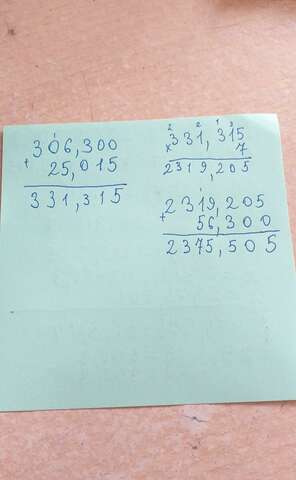 1
306,300
+ 25,015
331,315
2 2 1 3
331,315
× 7
2319,205
1
2319,205
+ 56,300
2375,505